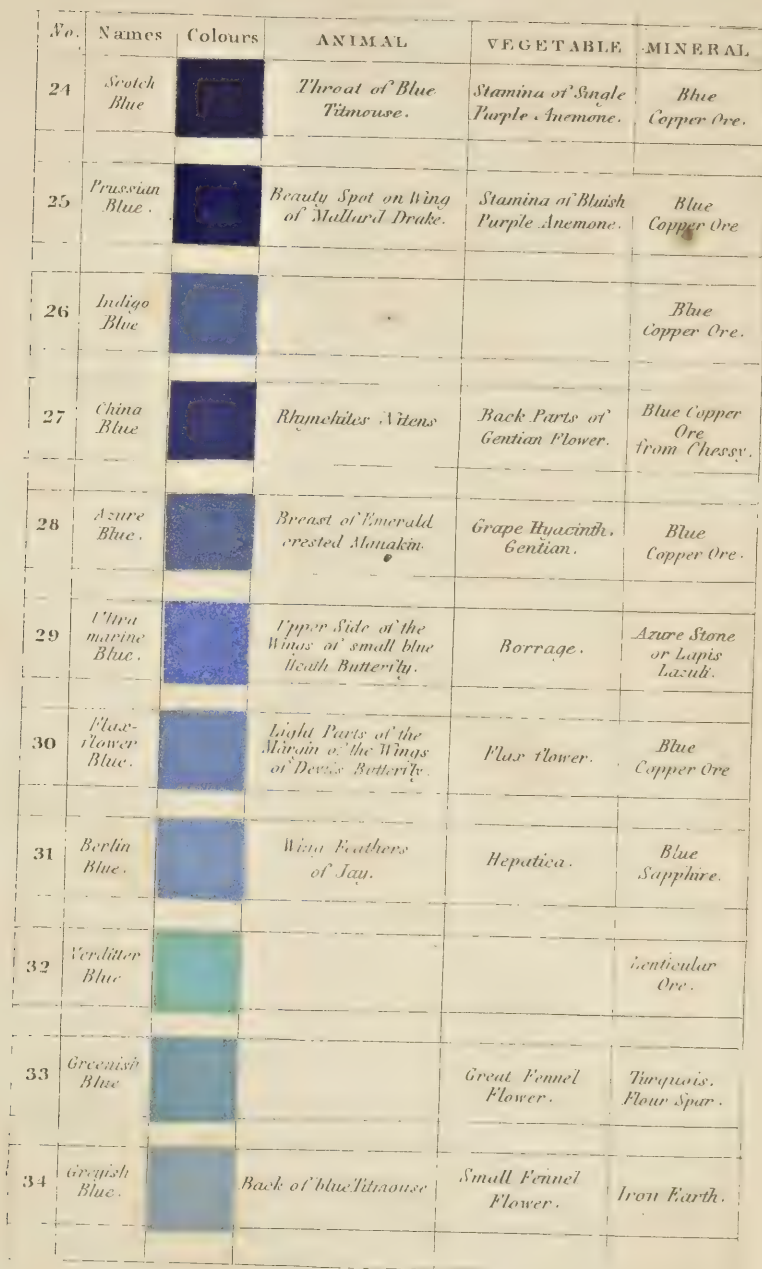 No. Names Colours ANIMAL VEGETABLE MINERAL
24
Scotch
Blue
Throat of Blue
Titmouse.
Stamina of Single
Purple Anemone.
Blue
Copper Ore.
25
Prussian
Blue.
Beauty Spot on Wing
of Mallard Drake.
Stamina of Bluish
Purple Anemone.
Blue
Copper Ore
26
Indigo
Blue
Blue
Copper Ore.
27
China
Blue
Rhynchites Nitens
Back Parts of
Gentian Flower.
Blue Copper
Ore
from Chessy.
28
Azure
Blue.
Breast of Emerald
crested Manakin.
Grape Hyacinth.
Gentian.
Blue
Copper Ore.
29
Ultra
marine
Blue.
Upper Side of the
Wings of small blue
Heath Butterfly.
Borrage.
Azure Stone
or Lapis
Lazuli.
30
Flax-
flower
Blue.
Light Parts of the
Margin of the Wings
of Devil's Butterfly.
Flax flower.
Blue
Copper Ore
31
Berlin
Blue.
Wing Feathers
of Jay.
Hepatica.
Blue
Sapphire.
32
Verditter
Blue
Lenticular
Ore.
33
Greenish
Blue
Great Fennel
Flower.
Turquois.
Flour Spar.
34
Greyish
Blue.
Back of blue Titmouse
Small Fennel
Flower.
Iron Earth.